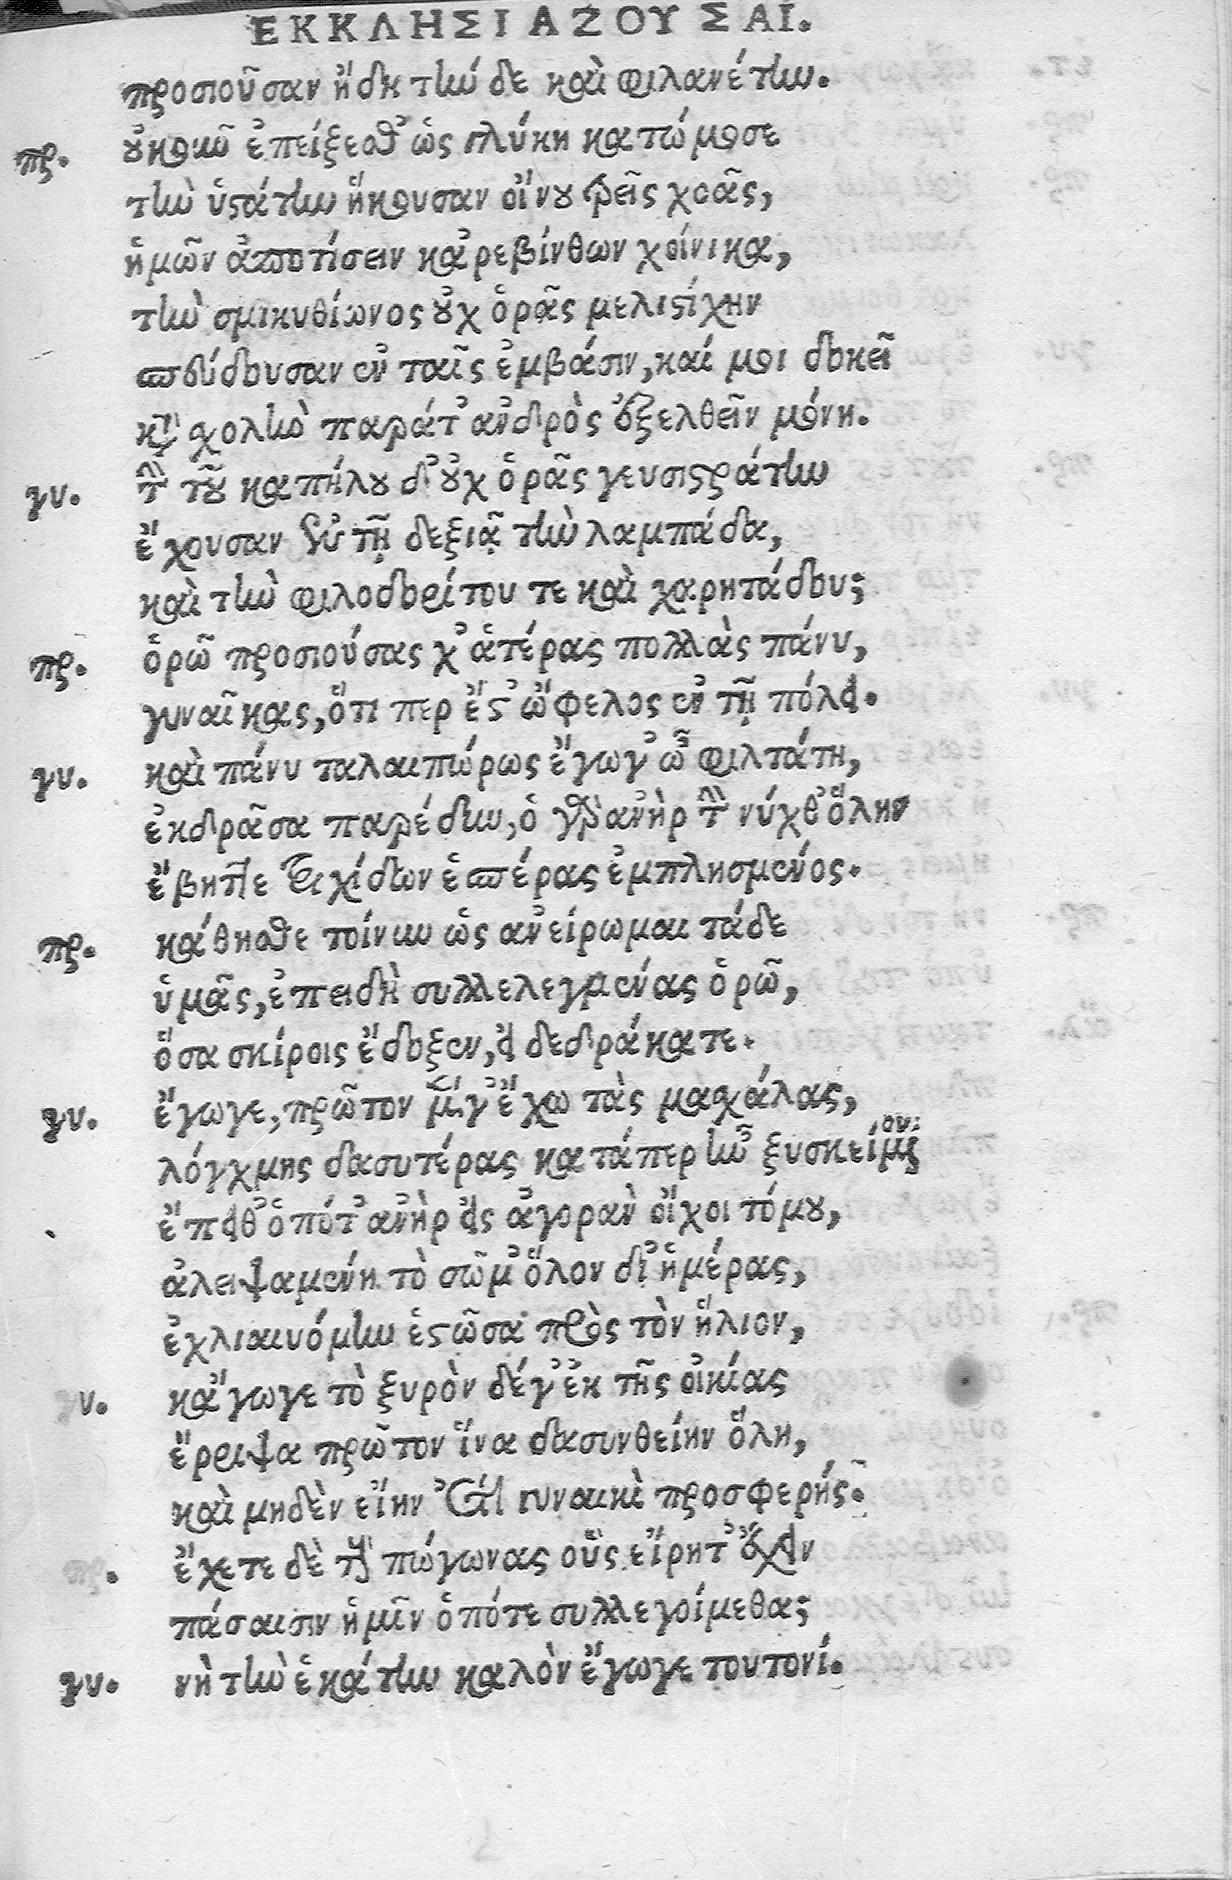 ΕΚΚΛΗΣΙΑΖΟΥΣΑΙ.
προσιοῦσαν ἤδη τήν δε καὶ φιλανέτην.
πρ. οὐκοῦν ἐπείξεσθ' ὡς γλύκη κατώμοσε
τὴν ὑστάτην ἥκουσαν οἴνου τρεῖς χοᾶς,
ἡμῶν ἀποτίσειν κἀρεβίνθων χοίνικα,
τὴν σμικυθίωνος οὐχ ὁρᾶς μελιστίχην
σπεύδουσαν ἐν ταῖς ἐμβάσιν, καί μοι δοκεῖ
κατὰ χολὴν παρά τ' ἀνδρὸς ἐξελθεῖν μόνη.
γυ. τὴν τοῦ καπήλου δ' οὐχ ὁρᾶς γευσιστράτην
ἔχουσαν ἐν τῇ δεξιᾷ τὴν λαμπάδα,
καὶ τὴν φιλοδορίτου τε καὶ χαρητάδου;
πρ. ὁρῶ προσιούσας χ' ἁτέρας πολλὰς πάνυ,
γυναῖκας, ὅτι περ ἔστ' ὤφελος ἐν τῇ πόλει.
γυ. καὶ πάνυ ταλαιπώρως ἔγωγ' ὦ φιλτάτη,
ἐκδρᾶσα παρέδυν, ὁ γὰρ ἀνὴρ τὴν νύχθ' ὅλην
ἔβηττε τριχίδων ἑσπέρας ἐμπλησμένος.
πρ. κάθησθε τοίνυν ὡς ἀνείρωμαι τάδε
ὑμᾶς, ἐπειδὴ συλλελεγμένας ὁρῶ,
ὅσα σκίροις ἔδοξεν, εἰ δεδράκατε.
γυ. ἔγωγε, πρῶτον μέν γ' ἔχω τὰς μαχάλας,
λόγχμης δασυτέρας κατάπερ ἦν ξυσκείμενον·
ἔπειθ' ὁπότ' ἀνὴρ εἰς ἀγορὰν οἴχοιτό μου,
ἀλειψαμένη τὸ σῶμ' ὅλον δι' ἡμέρας,
ἐχλιαινόμην ἑστῶσα πρὸς τὸν ἥλιον,
γυ. κἄγωγε τὸ ξυρὸν δέ γ' ἐκ τῆς οἰκίας
ἔρριψα πρῶτον ἵνα δασυνθείην ὅλη,
καὶ μηδὲν εἴην ἔτι γυναικὶ προσφερής.
. ἔχετε δὲ τοὺς πώγωνας οὓς εἴρητ' ἔχειν
πάσαισιν ἡμῖν ὁπότε συλλεγοίμεθα;
γυ. νὴ τὴν ἑκάτην καλὸν ἔγωγε τουτονί.